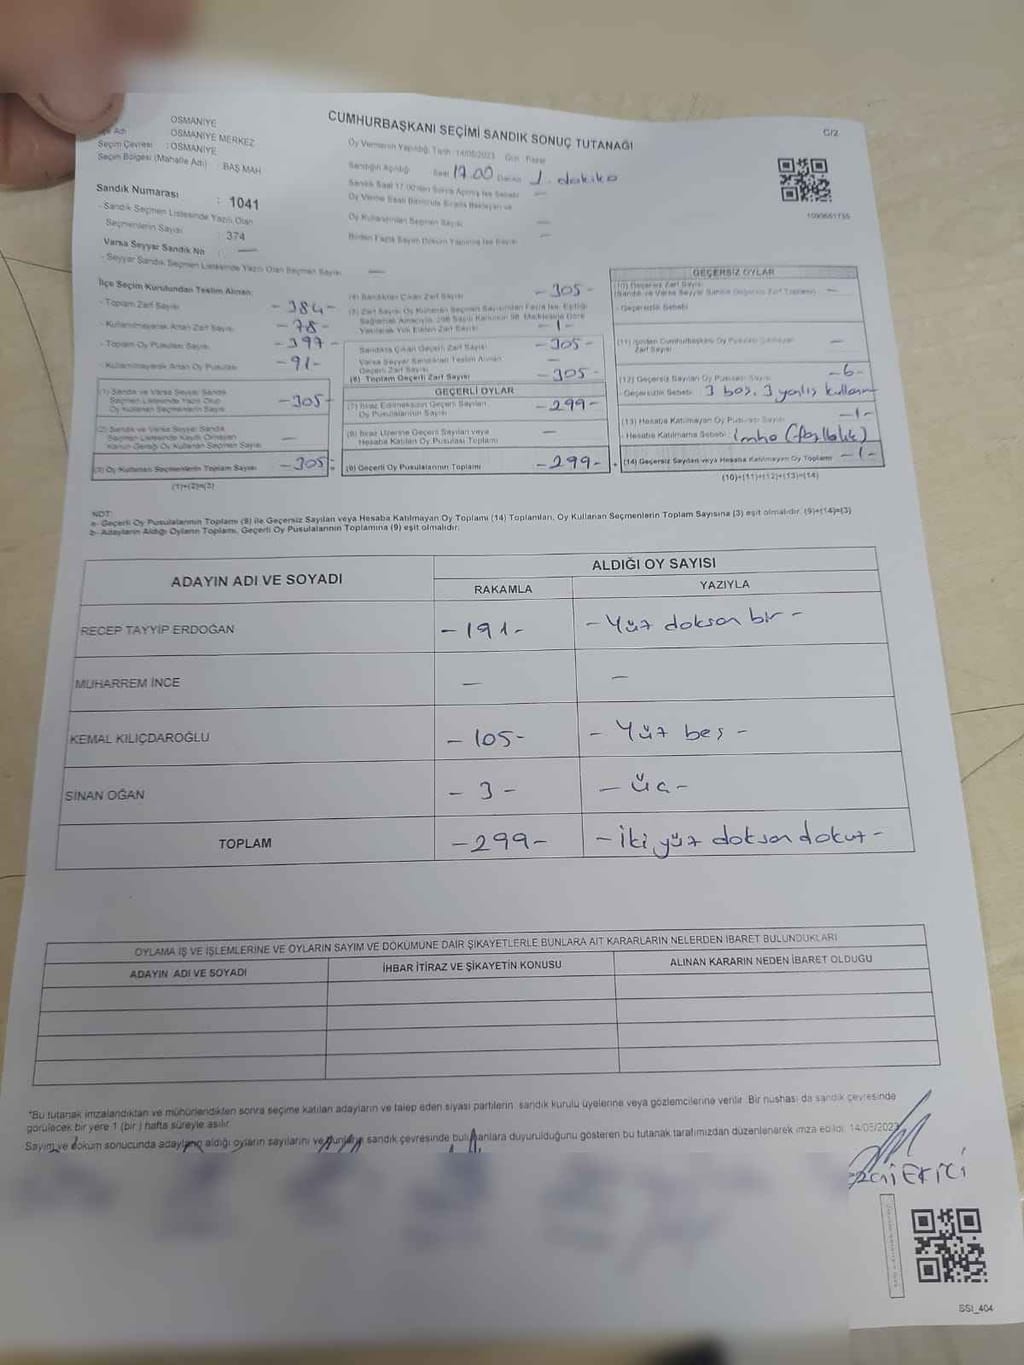 CUMHURBAŞKANI SEÇİMİ SANDIK SONUÇ TUTANAĞI
C/2
OSMANİYE
İlçe Adı OSMANİYE MERKEZ
Seçim Çevresi : OSMANİYE
Seçim Bölgesi (Mahalle Adı) : BAŞ MAH
Sandık Numarası : 1041
- Sandık Seçmen Listesinde Yazılı Olan
Seçmenlerin Sayısı : 374
Varsa Seyyar Sandık No —
- Seyyar Sandık Seçmen Listesinde Yazılı Olan Seçmen Sayısı —
Oy Vermenin Yapıldığı Tarih : 14/05/2023 Gün : Pazar
Sandığın Açıldığı Saat 17.00 Dakika 1. dakika
Sandık Saat 17.00'den Sonra Açılmış İse Sebebi —
Oy Verme Saati Bitiminde Sırada Bekleyen ve
Oy Kullanan Seçmen Sayısı —
Birden Fazla Sayım Döküm Yapılmış İse Sayısı —
İlçe Seçim Kurulundan Teslim Alınan:
- Toplam Zarf Sayısı -384-
- Kullanılmayarak Artan Zarf Sayısı -78-
- Toplam Oy Pusulası Sayısı -397-
- Kullanılmayarak Artan Oy Pusulası -91-
(1) Sandık ve Varsa Seyyar Sandık
Seçmen Listesinde Yazılı Olup
Oy Kullanan Seçmenlerin Sayısı -305-
(2) Sandık ve Varsa Seyyar Sandık
Seçmen Listesinde Kaydı Olmayan
Kanun Gereği Oy Kullanan Seçmen Sayısı —
(3) Oy Kullanan Seçmenlerin Toplam Sayısı -305-
(1)+(2)=(3)
(4) Sandıktan Çıkan Zarf Sayısı -305-
(5) Zarf Sayısı Oy Kullanan Seçmen Sayısından Fazla İse, Eşitliği
Sağlamak Amacıyla, 298 Sayılı Kanunun 98. Maddesine Göre
Yakılarak Yok Edilen Zarf Sayısı -1-
Sandıkta Çıkan Geçerli Zarf Sayısı -305-
Varsa Seyyar Sandıktan Teslim Alınan
Geçerli Zarf Sayısı —
(6) Toplam Geçerli Zarf Sayısı -305-
GEÇERLİ OYLAR
(7) İtiraz Edilmeksizin Geçerli Sayılan
Oy Pusulalarının Sayısı -299-
(8) İtiraz Üzerine Geçerli Sayılan veya
Hesaba Katılan Oy Pusulası Toplamı —
(9) Geçerli Oy Pusulalarının Toplamı -299-
GEÇERSİZ OYLAR
(10) Geçersiz Zarf Sayısı
(Sandık ve Varsa Seyyar Sandık Geçersiz Zarf Toplamı) —
- Geçersizlik Sebebi:
(11) İçinden Cumhurbaşkanı Oy Pusulası Çıkmayan
Zarf Sayısı —
(12) Geçersiz Sayılan Oy Pusulası Sayısı -6-
- Geçersizlik Sebebi: 3 boş, 3 yanlış kullanım
(13) Hesaba Katılmayan Oy Pusulası Sayısı -1-
- Hesaba Katılmama Sebebi: imha (fazlalık)
(14) Geçersiz Sayılan veya Hesaba Katılmayan Oy Toplamı -1-
(10)+(11)+(12)+(13)=(14)
NOT:
a- Geçerli Oy Pusulalarının Toplamı (9) ile Geçersiz Sayılan veya Hesaba Katılmayan Oy Toplamı (14) Toplamları, Oy Kullanan Seçmenlerin Toplam Sayısına (3) eşit olmalıdır. (9)+(14)=(3)
b- Adayların Aldığı Oyların Toplamı, Geçerli Oy Pusulalarının Toplamına (9) eşit olmalıdır.
ADAYIN ADI VE SOYADI
ALDIĞI OY SAYISI
RAKAMLA YAZIYLA
RECEP TAYYİP ERDOĞAN -191- -Yüz doksan bir-
MUHARREM İNCE — —
KEMAL KILIÇDAROĞLU -105- -Yüz beş-
SİNAN OĞAN -3- -üç-
TOPLAM -299- -İki yüz doksan dokuz-
OYLAMA İŞ VE İŞLEMLERİNE VE OYLARIN SAYIM VE DÖKÜMÜNE DAİR ŞİKAYETLERLE BUNLARA AİT KARARLARIN NELERDEN İBARET BULUNDUKLARI
ADAYIN ADI VE SOYADI İHBAR İTİRAZ VE ŞİKAYETİN KONUSU ALINAN KARARIN NEDEN İBARET OLDUĞU
*Bu tutanak imzalandıktan ve mühürlendikten sonra seçime katılan adayların ve talep eden siyasi partilerin, sandık kurulu üyelerine veya gözlemcilerine verilir. Bir nüshası da sandık çevresinde
görülecek bir yere 1 (bir) hafta süreyle asılır.
Sayım ve döküm sonucunda adayların aldığı oyların sayılarını ve bunların sandık çevresinde bulunanlara duyurulduğunu gösteren bu tutanak tarafımızdan düzenlenerek imza edildi. 14/05/2023
SSI_404